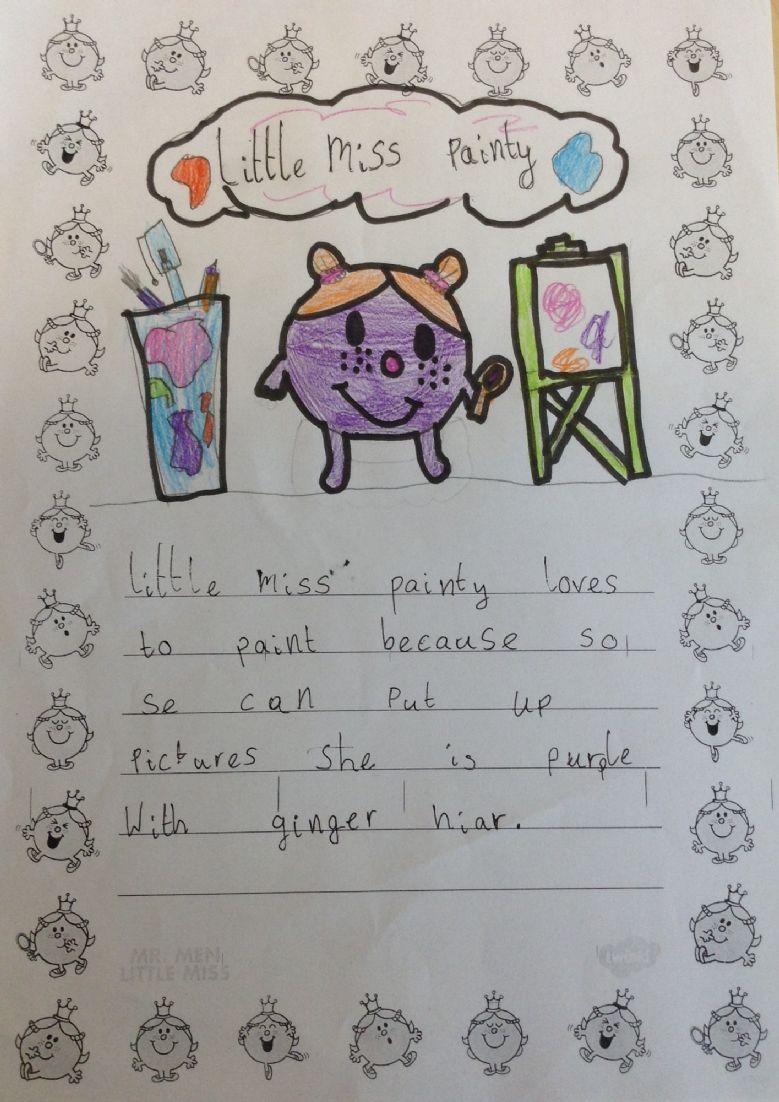 Little Miss Painty
little miss painty loves
to paint because so
se can put up
pictures she is purple
With ginger hiar.
MR. MEN
LITTLE MISS